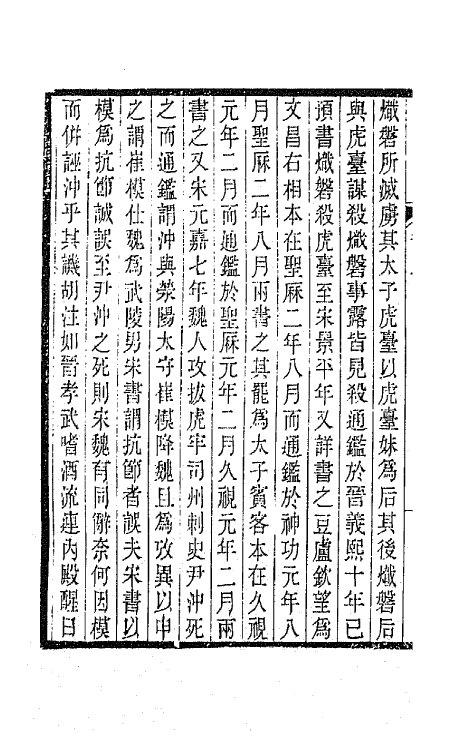 熾磐所滅虜其太子虎臺以虎臺妹爲后其後熾磐后
與虎臺謀殺熾磐事露皆見殺通鑑於晉義熙十年已
預書熾磐殺虎臺至宋景平年又詳書之豆盧欽望爲
文昌右相本在聖厤二年八月而通鑑於神功元年八
月聖厤二年八月兩書之其罷爲太子賓客本在久視
元年二月而通鑑於聖厤元年二月久視元年二月兩
書之又宋元嘉七年魏人攻拔虎牢司州刺史尹沖死
之而通鑑謂沖與滎陽太守崔模降魏且爲攷異以申
之謂崔模仕魏爲武陵男宋書謂抗節者誤夫宋書以
模爲抗節誠誤至尹沖之死則宋魏有同辭奈何因模
而併誣沖乎其譏胡注如晉孝武嗜酒流連內殿醒日